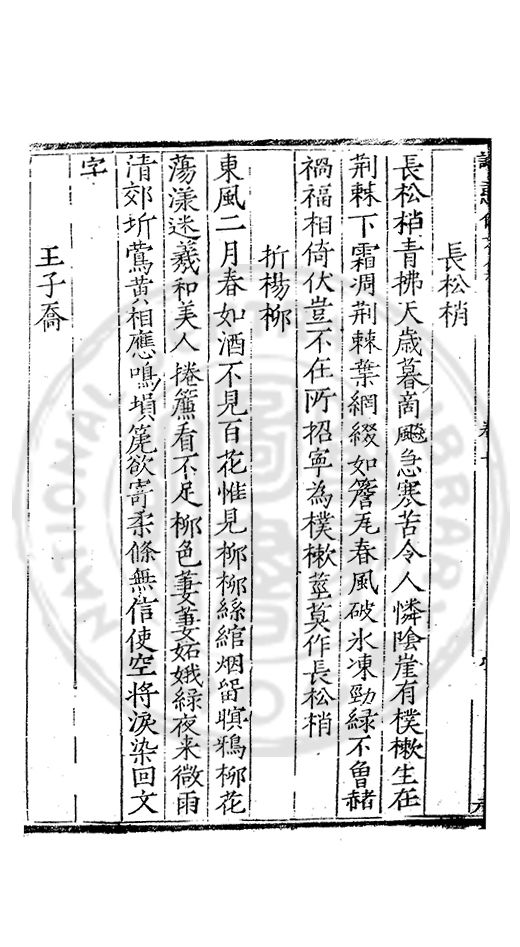 長松梢
長松梢青拂天歲暮商飈急寒苦令人憐陰崖有樸樕生在
荆棘下霜凋荆棘葉網綴如簷瓦春風破氷凍勁綠不曾赭
禍福相倚伏豈不在所招寧為樸樕莖莫作長松梢
折楊柳
東風二月春如酒不見百花惟見柳柳絲綰烟留暝鴉柳花
蕩漾迷羲和美人捲簾看不足柳色萋萋妬娥綠夜来微雨
清郊圻鶯黃相應鳴塤篪欲寄柔條無信使空將淚染回文
字
王子喬
NATIONAL LIBRARY